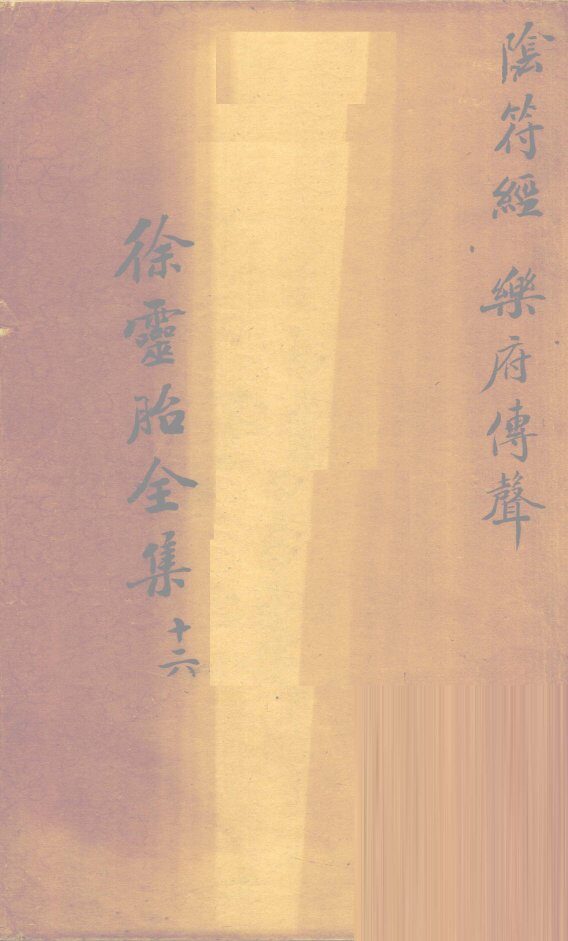 陰符經 樂府傳聲
徐靈胎全集
十六